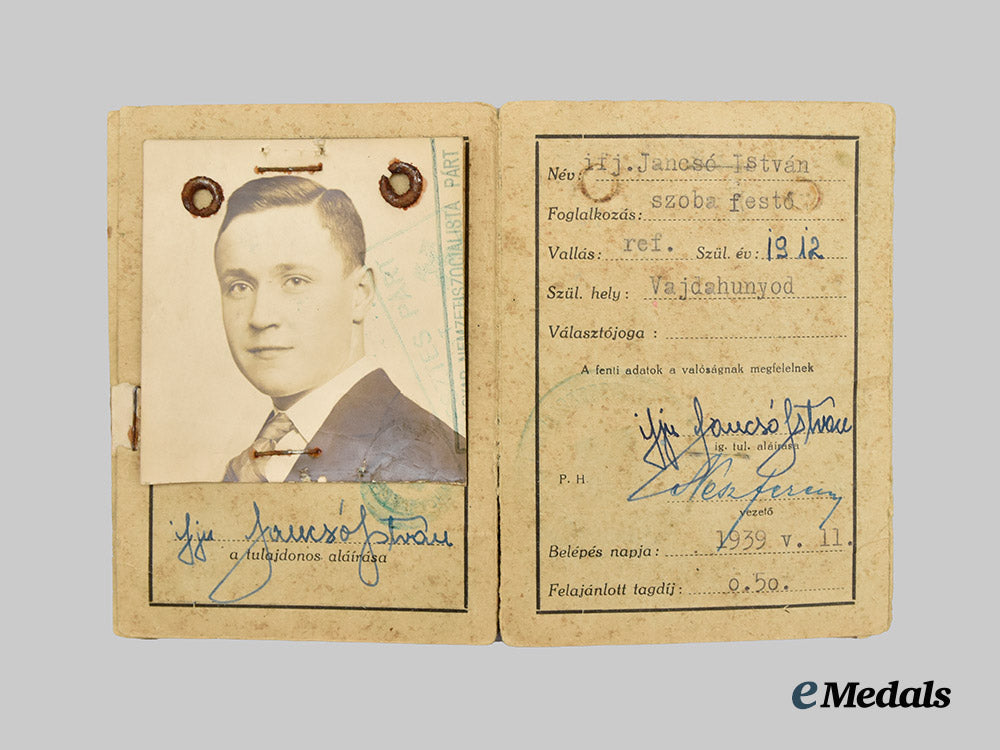 NEMZETISZOCIALISTA PÁRT
PÁRT
ifju Jancsó István
a tulajdonos aláírása
Név: ifj. Jancsó István
Foglalkozás: szoba festő
Vallás: ref. Szül. év: 1912
Szül. hely: Vajdahunyod
Választójoga :
A fenti adatok a valóságnak megfelelnek
ifju Jancsó István
ig. tul. aláírása
P. H.
vezető
Belépés napja: 1939 v. 11.
Felajánlott tagdíj: 0.50.
eMedals